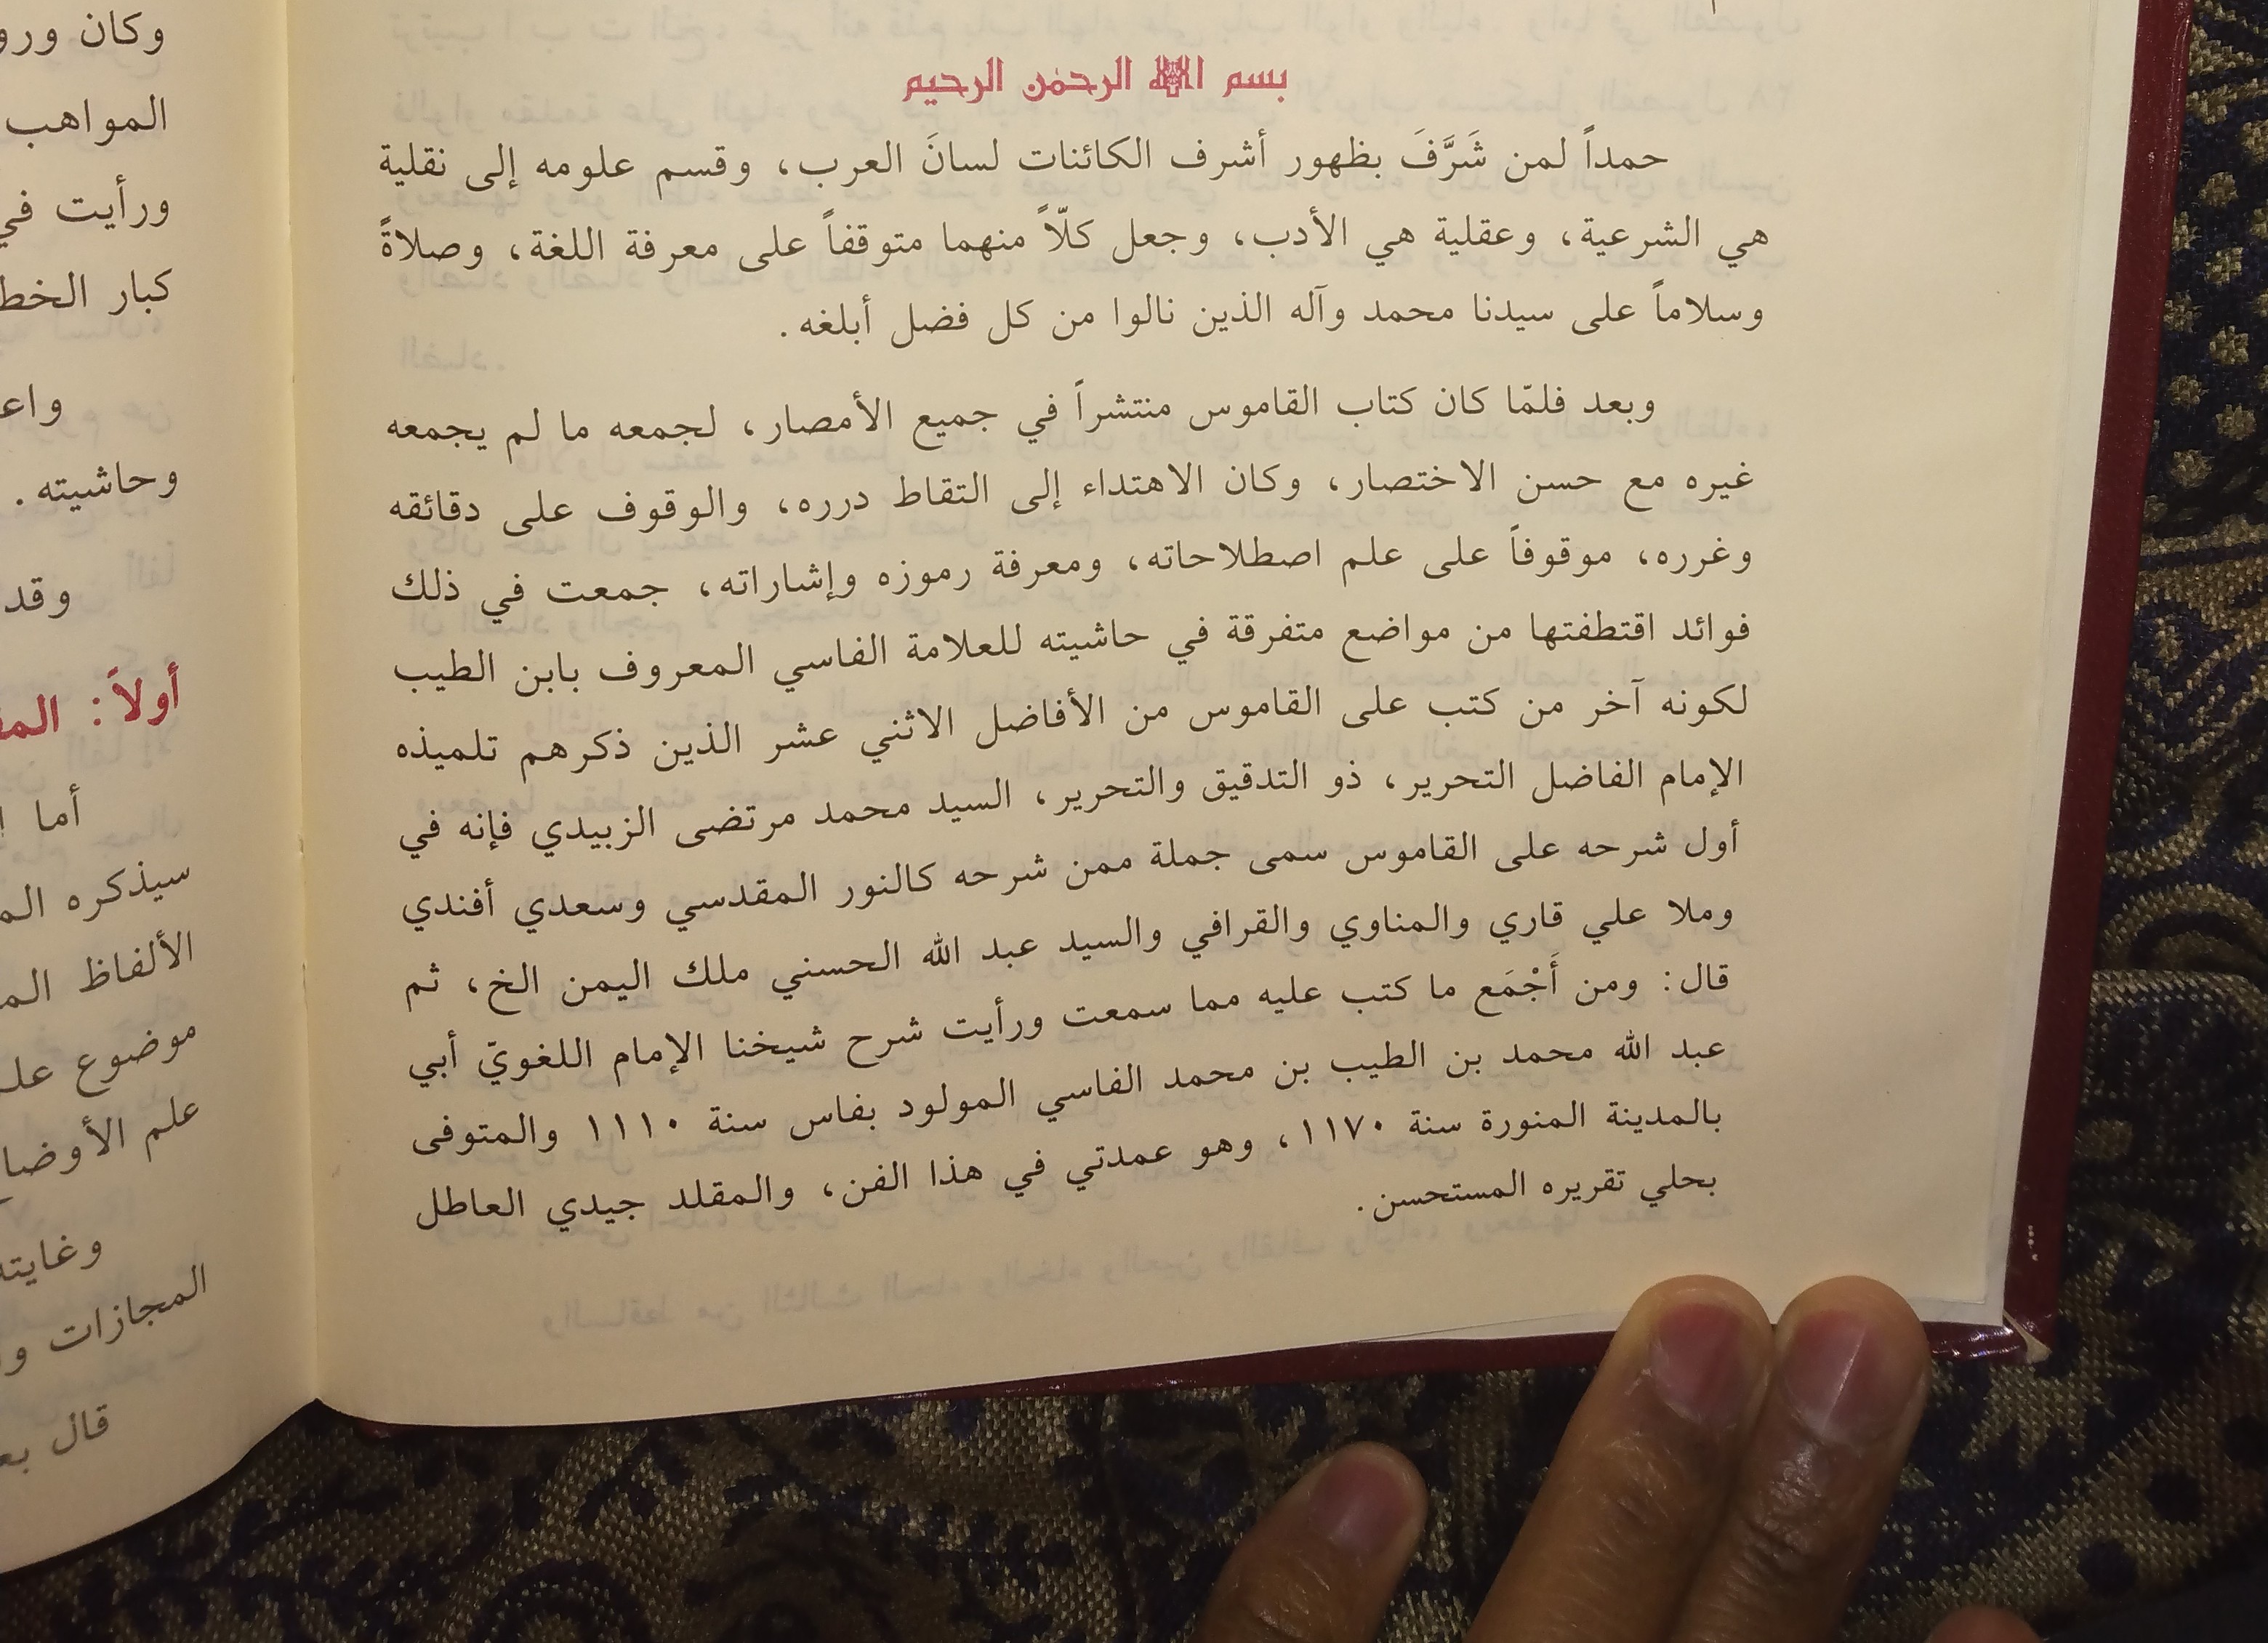 بسم الله الرحمن الرحيم
حمداً لمن شَرَّفَ بظهور أشرف الكائنات لسانَ العرب، وقسم علومه إلى نقلية
هي الشرعية، وعقلية هي الأدب، وجعل كلّاً منهما متوقفاً على معرفة اللغة، وصلاةً
وسلاماً على سيدنا محمد وآله الذين نالوا من كل فضل أبلغه.
وبعد فلمّا كان كتاب القاموس منتشراً في جميع الأمصار، لجمعه ما لم يجمعه
غيره مع حسن الاختصار، وكان الاهتداء إلى التقاط درره، والوقوف على دقائقه
وغرره، موقوفاً على علم اصطلاحاته، ومعرفة رموزه وإشاراته، جمعت في ذلك
فوائد اقتطفتها من مواضع متفرقة في حاشيته للعلامة الفاسي المعروف بابن الطيب
لكونه آخر من كتب على القاموس من الأفاضل الاثني عشر الذين ذكرهم تلميذه
الإمام الفاضل التحرير، ذو التدقيق والتحرير، السيد محمد مرتضى الزبيدي فإنه في
أول شرحه على القاموس سمى جملة ممن شرحه كالنور المقدسي وسعدي أفندي
وملا علي قاري والمناوي والقرافي والسيد عبد الله الحسني ملك اليمن الخ، ثم
قال: ومن أَجْمَع ما كتب عليه مما سمعت ورأيت شرح شيخنا الإمام اللغويّ أبي
عبد الله محمد بن الطيب بن محمد الفاسي المولود بفاس سنة ١١١٠ والمتوفى
بالمدينة المنورة سنة ١١٧٠، وهو عمدتي في هذا الفن، والمقلد جيدي العاطل
بحلي تقريره المستحسن.
المواهب
ورأيت في
كبار
وحاشيته.
وقد
أولاً:
أما
سيذكره
الألفاظ
موضوع
علم
المجازات
قال